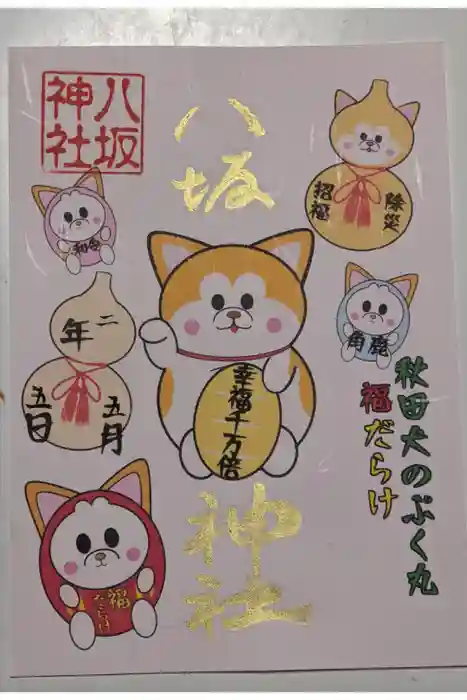 八坂
神社
八坂
神社
除災
招福
鹿角
二年
五月
五日
幸福千万倍
秋田犬のぷく丸
福だらけ
福
だらけ